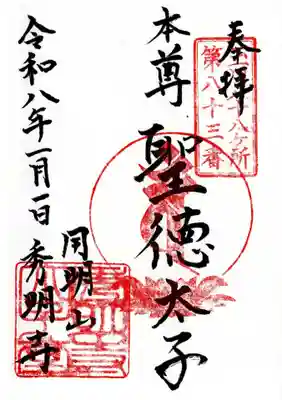 奉拝
八ヶ所
第八十三番
本尊 聖徳太子
円明山
秀明寺
令和八年一月一日